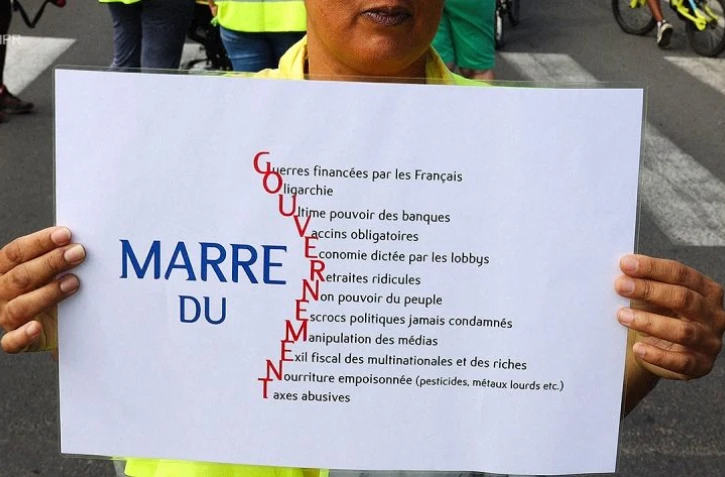 MARRE
DU
Guerres financées par les Français
Oligarchie
Ultime pouvoir des banques
Vaccins obligatoires
Economie dictée par les lobbys
Retraites ridicules
Non pouvoir du peuple
Escrocs politiques jamais condamnés
Manipulation des médias
Exil fiscal des multinationales et des riches
Nourriture empoisonnée (pesticides, métaux lourds etc.)
Taxes abusives